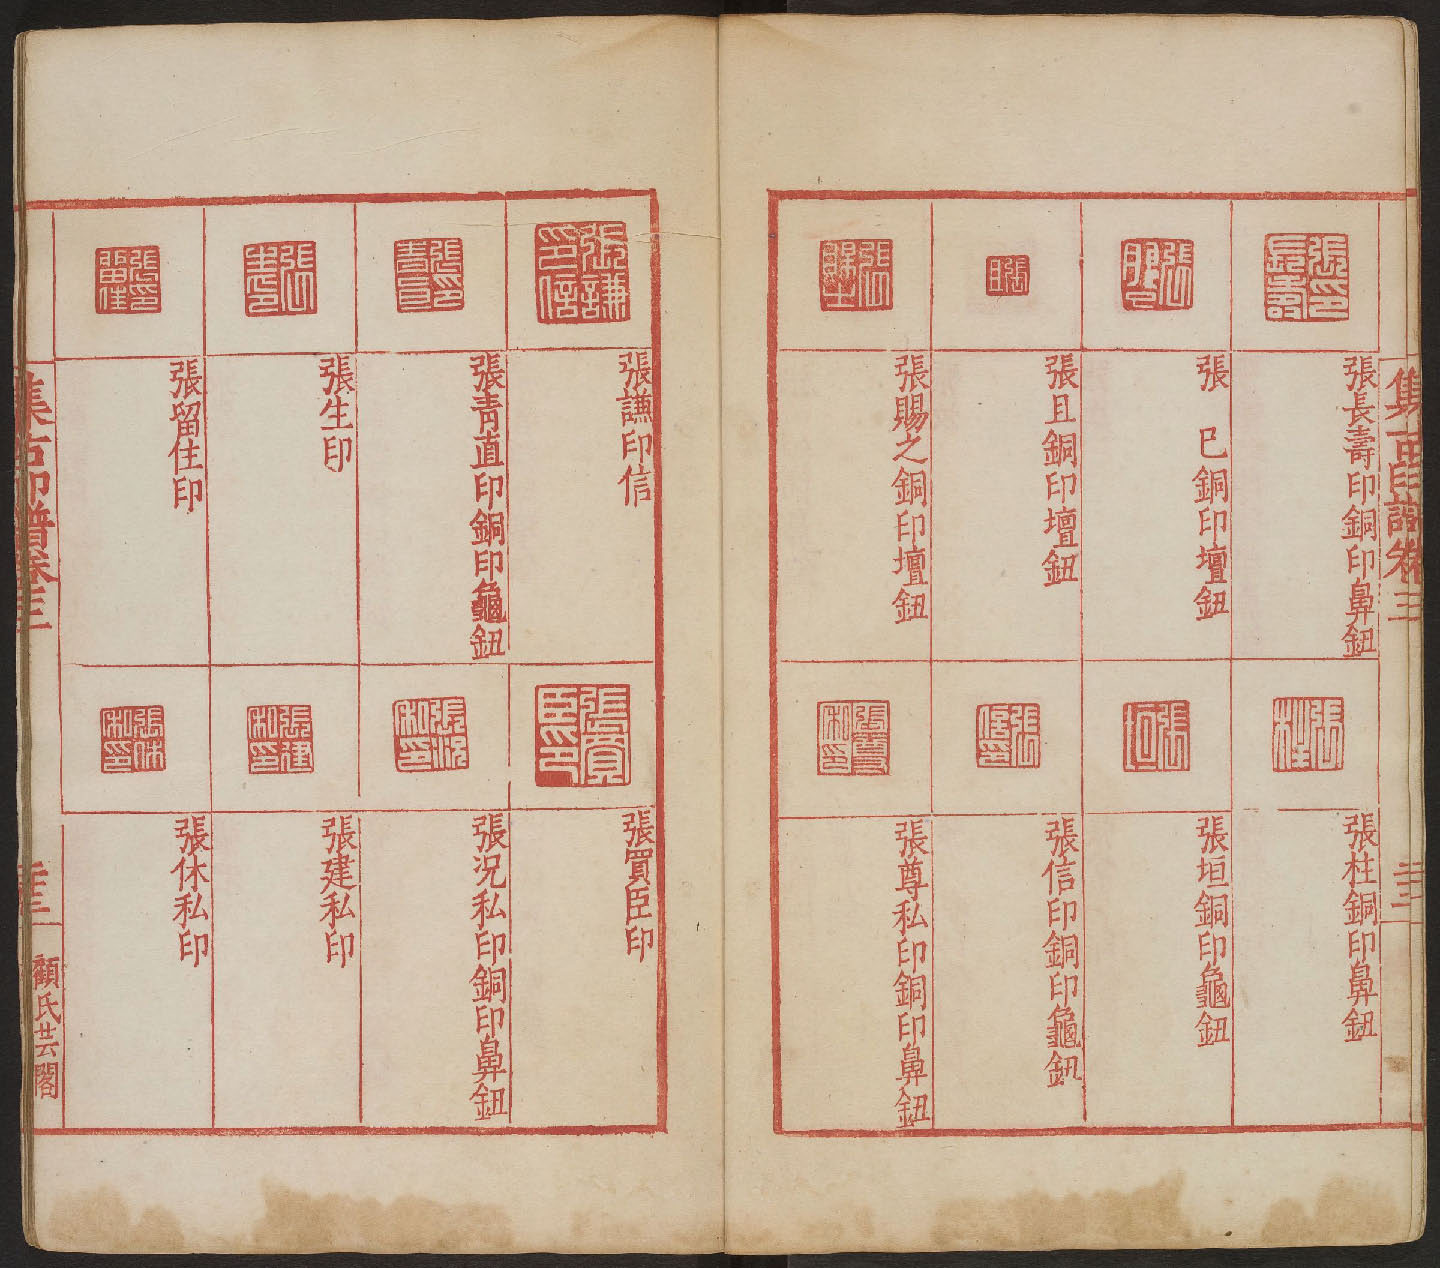 集古印譜卷三
張長壽印銅印鼻鈕
張 巳銅印壇鈕
張且銅印壇鈕
張賜之銅印壇鈕
張柱銅印鼻鈕
張垣銅印龜鈕
張信印銅印龜鈕
張尊私印銅印鼻鈕
張謙印信
張青直印銅印龜鈕
張生印
張留住印
張買臣印
張況私印銅印鼻鈕
張建私印
張休私印
集古印譜卷三
顧氏芸閣